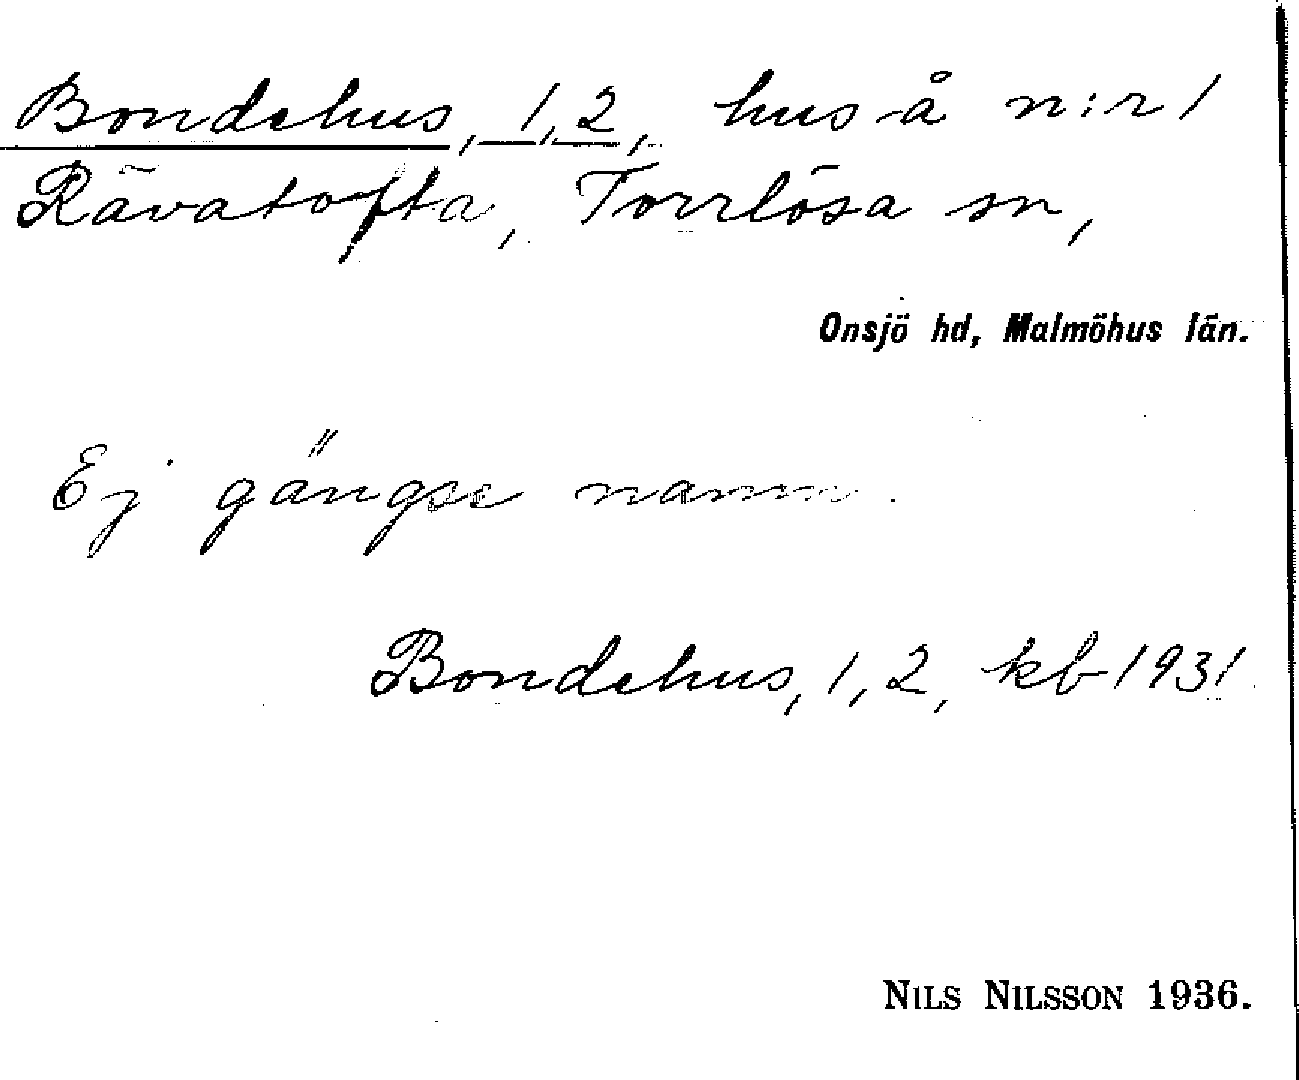 Bondehus, 1, 2, hus å n:r 1
Rävatofta, Torrlösa sn,
Onsjö hd, Malmöhus län.
Ej gängse namn.
Bondehus, 1, 2, kb 1931
NILS NILSSON 1936.